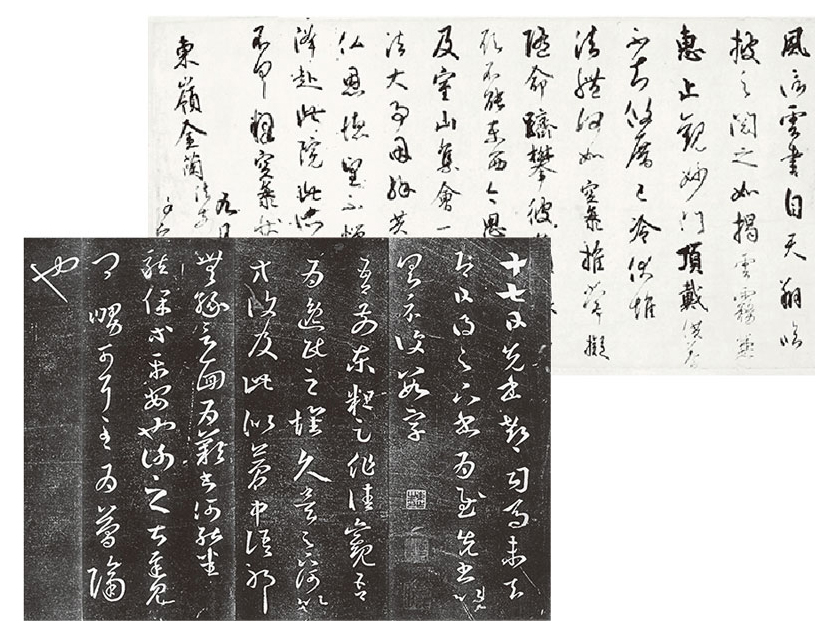 風信雲書自天翔臨
披之閱之如揭雲霧兼
惠止觀妙門頂戴供養
不知攸厝已冷伏惟
法體何如空海推常擬
隨命躋攀彼
願不能東西今思
及室山集會一
法大事因緣共
仏恩德望不憚
降赴此院此所
不具釋空海狀
九月
東嶺金蘭法前
十七日先書郗司馬未去
即日得足下書為慰先書以
具示復數字
吾前東粗足作佳觀吾
為逸民之懷久矣足下何以
方復及此似夢中語耶
無緣言面為歎書何能悉
龍保等平安也謝之甚遲見
卿舅可耳至為簡隔
也